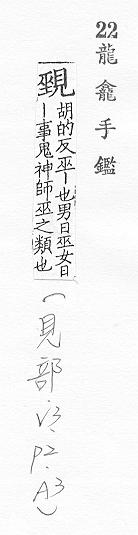 22 龍龕手鑑
覡
胡的反巫丨也男曰巫女曰
丨事鬼神師巫之類也
(見部.V3.P2.A3)